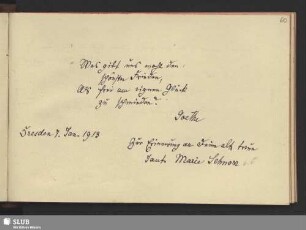 60
Was gibt uns wohl den
schönsten Frieden,
Als frei am eignen Glück
zu schmieden.
Goethe
Dresden 7. Jan. 1913
Zur Erinnerung an Deine alte treue
Tante Marie Schnorr
SLUB